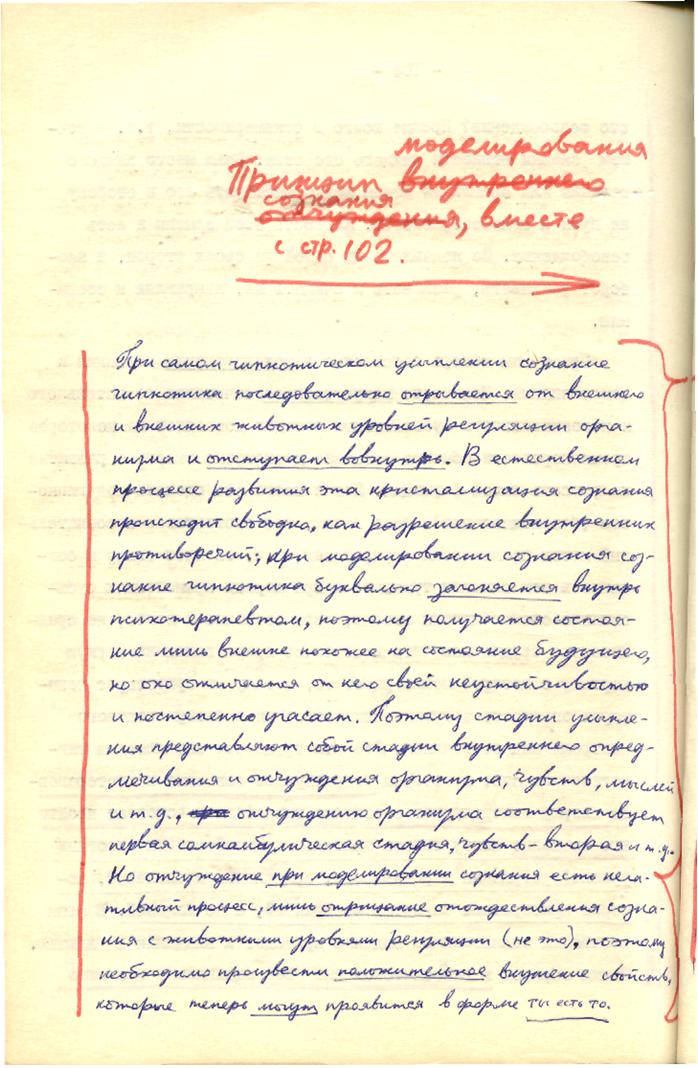 моделирования
Принцип внутреннего
сознания
отчуждения, вместе
с стр. 102.
При самом гипнотическом усыплении сознание
гипнотика последовательно отрывается от внешнего
и внешних животных уровней регуляции орга-
низма и отступает вовнутрь. В естественном
процессе развития эта кристализация сознания
происходит свободно, как разрешение внутренних
противоречий; при моделировании сознания соз-
нание гипнотика буквально загоняется внутрь
психотерапевтом, поэтому получается состоя-
ние лишь внешне похожее на состояние будущего,
но оно отличается от него своей неустойчивостью
и постепенно угасает. Поэтому стадии усыпле-
ния представляют собой стадии внутреннего опред-
мечивания и отчуждения организма, чувств, мыслей
и т.д., при отчуждению организма соответствует
первая сомнамбулическая стадия, чувств - вторая и т.д.
Но отчуждение при моделировании сознания есть нега-
тивный процесс, лишь отрицание отождествления созна-
ния с животными уровнями регуляции (не это), поэтому
необходимо произвести положительное внушение свойств,
которые теперь могут проявится в форме ты есть то.